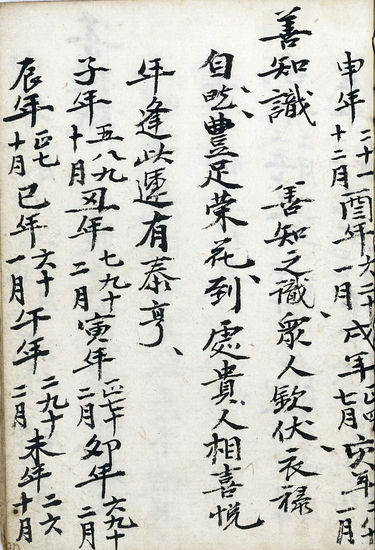 申年二十一十二月酉年六二十一月戌年正四七月亥年二十一月
善知識　善知之識、眾人欽伏、衣祿
自然、豐足榮花、到處貴人相喜悅
年逢此運有泰亨、
子年五八九十月丑年七九十二月寅年正七十二月卯年六九十二月
辰年正七十月巳年六十一月午年二九十二月未年二六十月